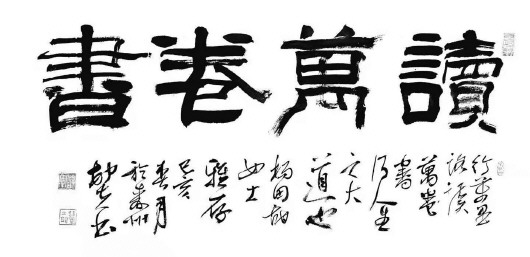 讀萬卷書
行萬里
路讀
萬卷
書
人生
之大
道也
楊田
女士
雅存
己亥
春月
於